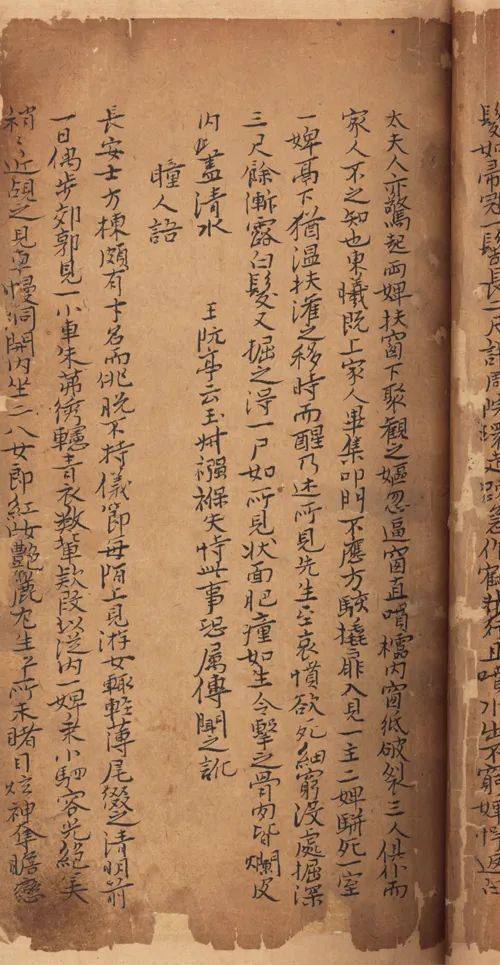 髮如帚冠一髻長二尺許周院環走疎急作鶴行且噴水出不窮婢愕返白
太夫人亦驚起兩婢扶窗下聚觀之嫗忽逼窗直噴櫺內窗紙破裂三人俱仆而
家人不之知也東曦既上家人畢集叩門不應方駭撬扉入見一主二婢駢死一室
一婢鬲下猶温扶灌之移時而醒乃述所見先生至哀憤欲死細窮沒處掘深
三尺餘漸露白髮又掘之得一尸如所見狀面肥瘇如生令擊之骨肉皆爛皮
內盡清水 王阮亭云玉叔襁褓失恃此事恐屬傳聞之訛
瞳人語
長安士方棟頗有才名而佻脫不持儀節每陌上見游女輒輕薄尾綴之清明前
一日偶步郊郭見一小車朱茀綉幰青衣數輩款段以從內一婢乘小駟容光絕美
稍々近覘之見車幔洞開內坐二八女郎紅妝艷麗尤生平所未睹目炫神奪瞻戀